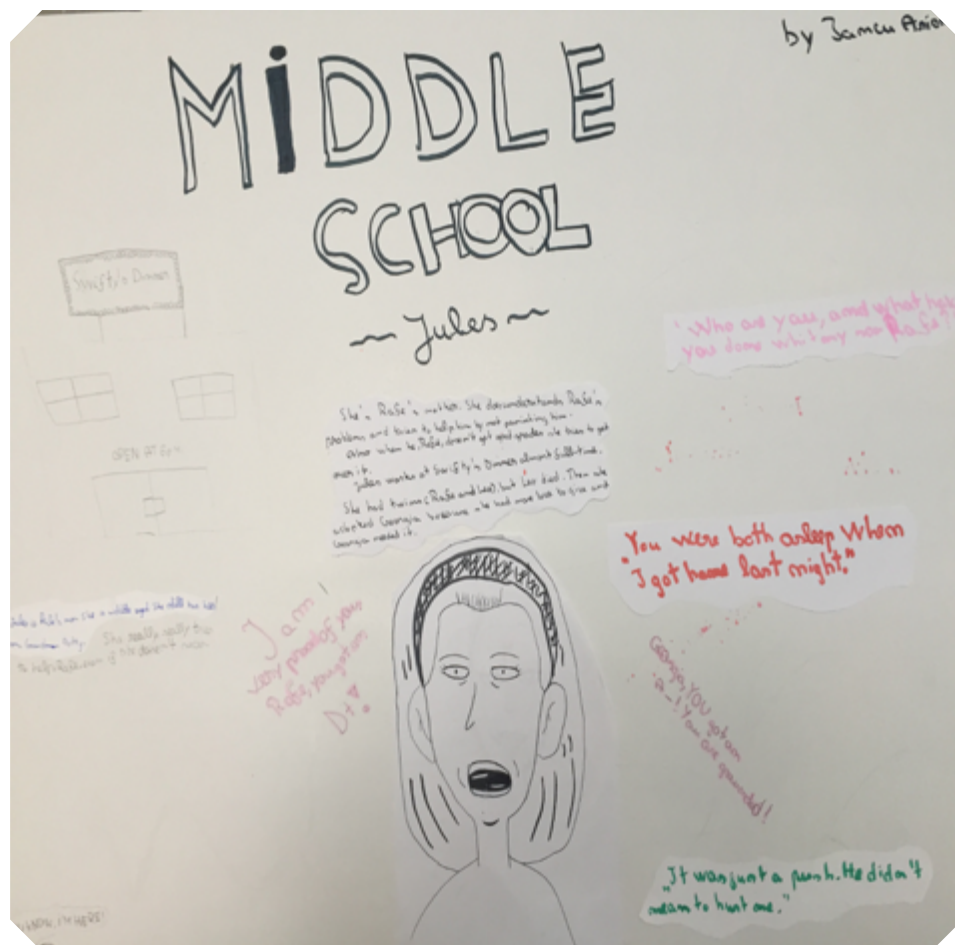 by
MiDDLE
SCHOOL
~ Jules ~
Swifty's Dinner
OPEN AT
"Who are you, and what have
you done with my Rafe?
She's Rafe's mother. She does understands Rafe's
problems and tries to help him by not punishing him.
when he, Rafe, doesn't get good grades she tries to get
over it.
Jules works at Swifty's Dinner almost full-time.
She had twins (Rafe and Leo), but Leo died. Then she
adopted Georgia because she had more love to give and
Georgia needed it.
"You were both asleep when
I got home last night."
Rafe's mom she is middle aged She still
She really really tries
to help Rafe even if he doesn't
I am
very proud of you
Rafe, you got an
D+!
Georgia, YOU got an
A-! You are grounded!
"It was just a push. He didn't
mean to hurt me."
I'M HERE!